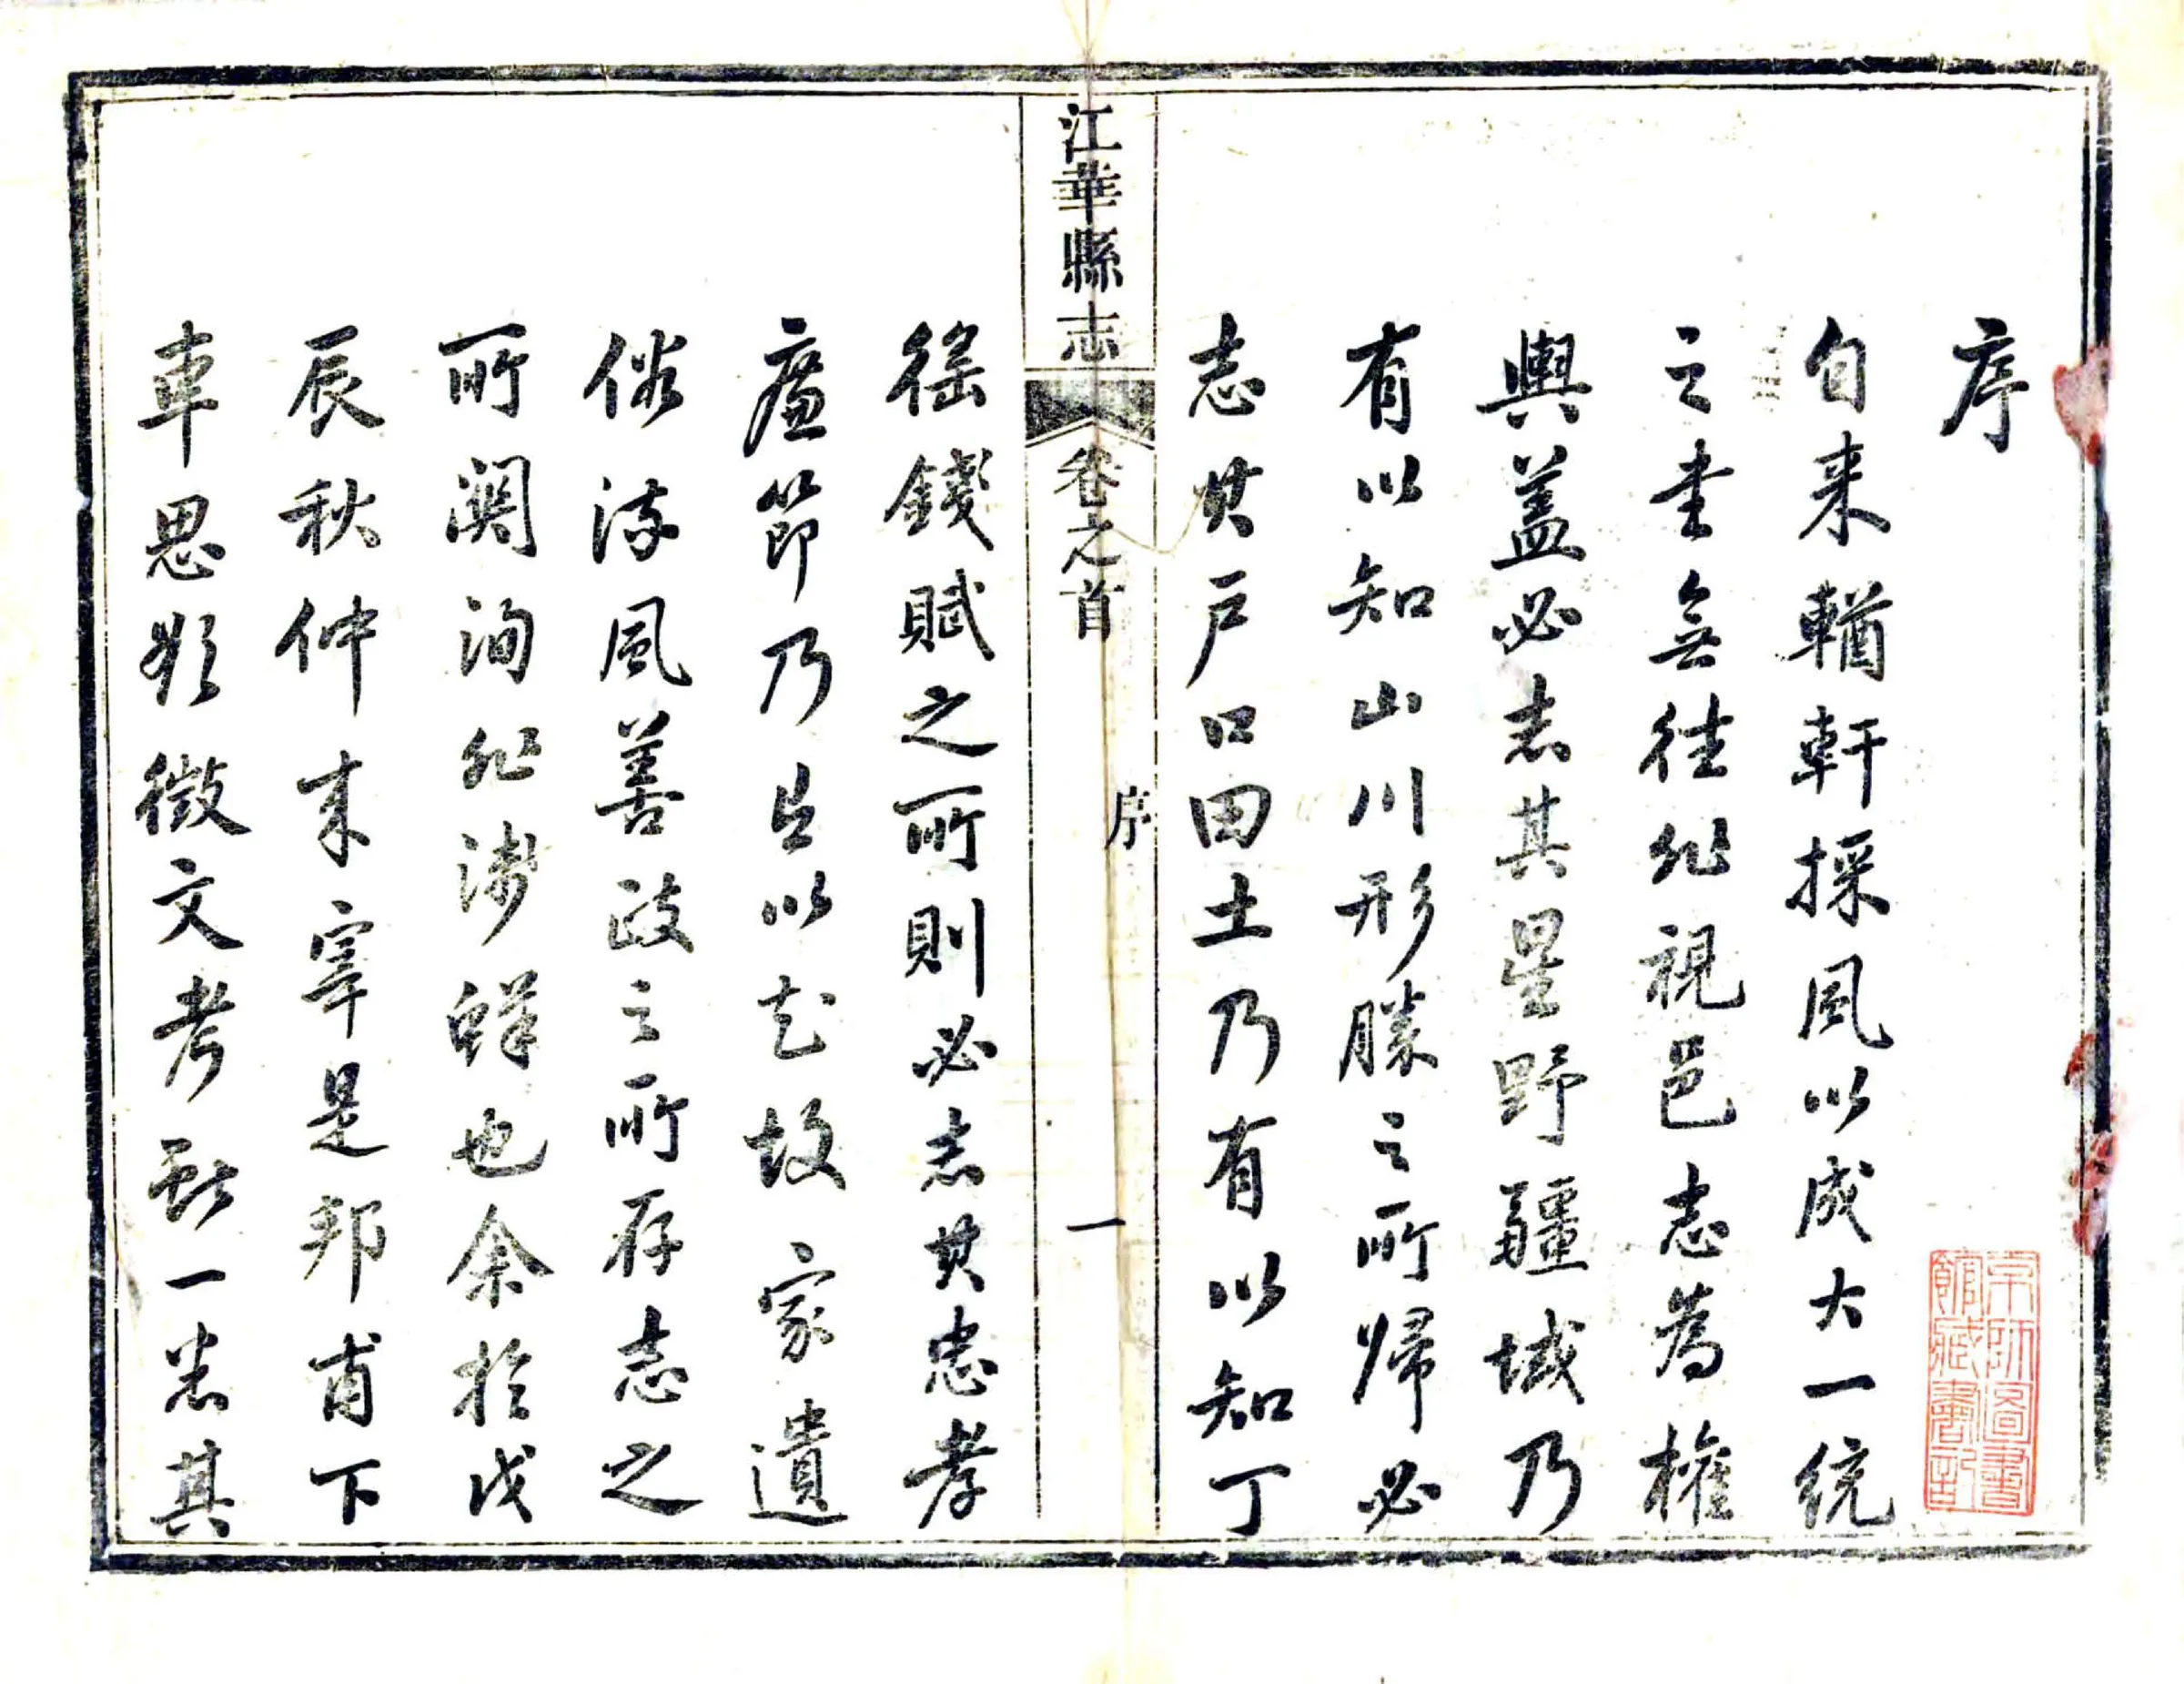 序
自来輶軒採風以成大一統
之書無徃非視邑志為權
輿葢必志其星野疆域乃
有以知山川形勝之所歸必
志其户口田土乃有以知丁
徭錢賦之所則必志其忠孝
廉節乃足以知故家遺
俗流風善政之所存志之
所関洵非淺鮮也余於戊
辰秋仲来宰是邦甫下
車思欲徵文考獻一悉其
江華縣志
卷之首
序
一
京師圖書
館藏書記